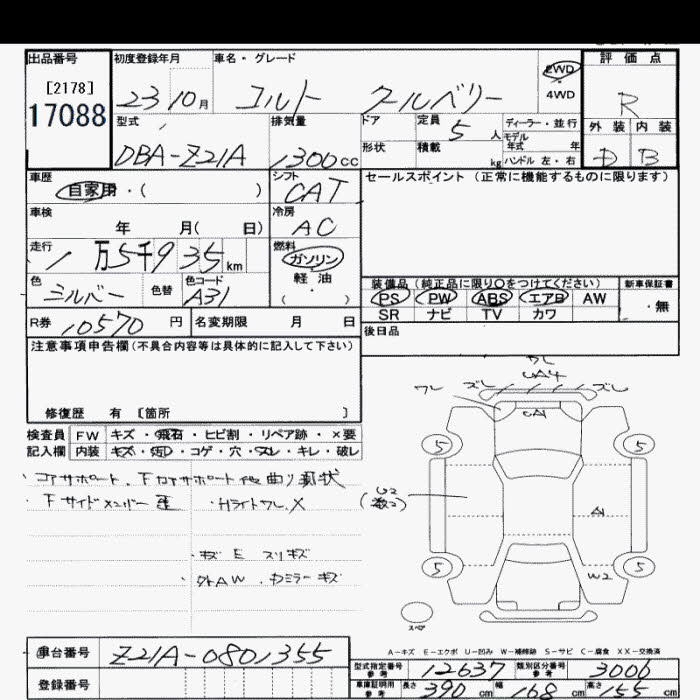 出品番号
[2178]
17088
初度登録年月
23 10月
車名・グレード
コルト クールベリー
2WD
4WD
評価点
R
外装 内装
D B
型式
DBA-Z21A
排気量
1300cc
ドア
形状
定員
5人
積載
kg
ディーラー・並行
モデル
年式 年
ハンドル 左・右
車歴
自家用・( )
シフト
CAT
セールスポイント(正常に機能するものに限ります)
車検
年 月( 日)
冷房
AC
走行
1万5千935km
燃料
ガソリン
軽油
( ・ )
色
シルバー
色替
色コード
A31
装備品(純正品に限り○をつけてください)
PS PW ABS エアB AW
SR ナビ TV カワ
新車保証書
・無
R券
10570円
名変期限 月 日
後日品
注意事項申告欄(不具合内容等は具体的に記入して下さい)
修復歴 有 〔箇所 〕
検査員
記入欄
FW キズ・飛石・ヒビ割・リペア跡・×要
内装 キズ・コゲ・穴・スレ・キレ・破レ
・コアサポート、Fロアサポート他曲り現状
・Fサイドメンバー
・Hライトワレ、X
・キズ E スリキズ
・外AW
ワレ ズレ ワレ ズレ
UA4
CA1
5 5
W2
A1
5 5
W2
スペア
A-キズ E-エクボ U-凹み W-補修跡 S-サビ C-腐食 XX-交換済
車台番号
Z21A-0801355
登録番号
型式指定番号
参考
12637
類別区分番号
参考
3006
車庫証明用
参考
長さ 390cm 幅 168cm 高さ 155cm